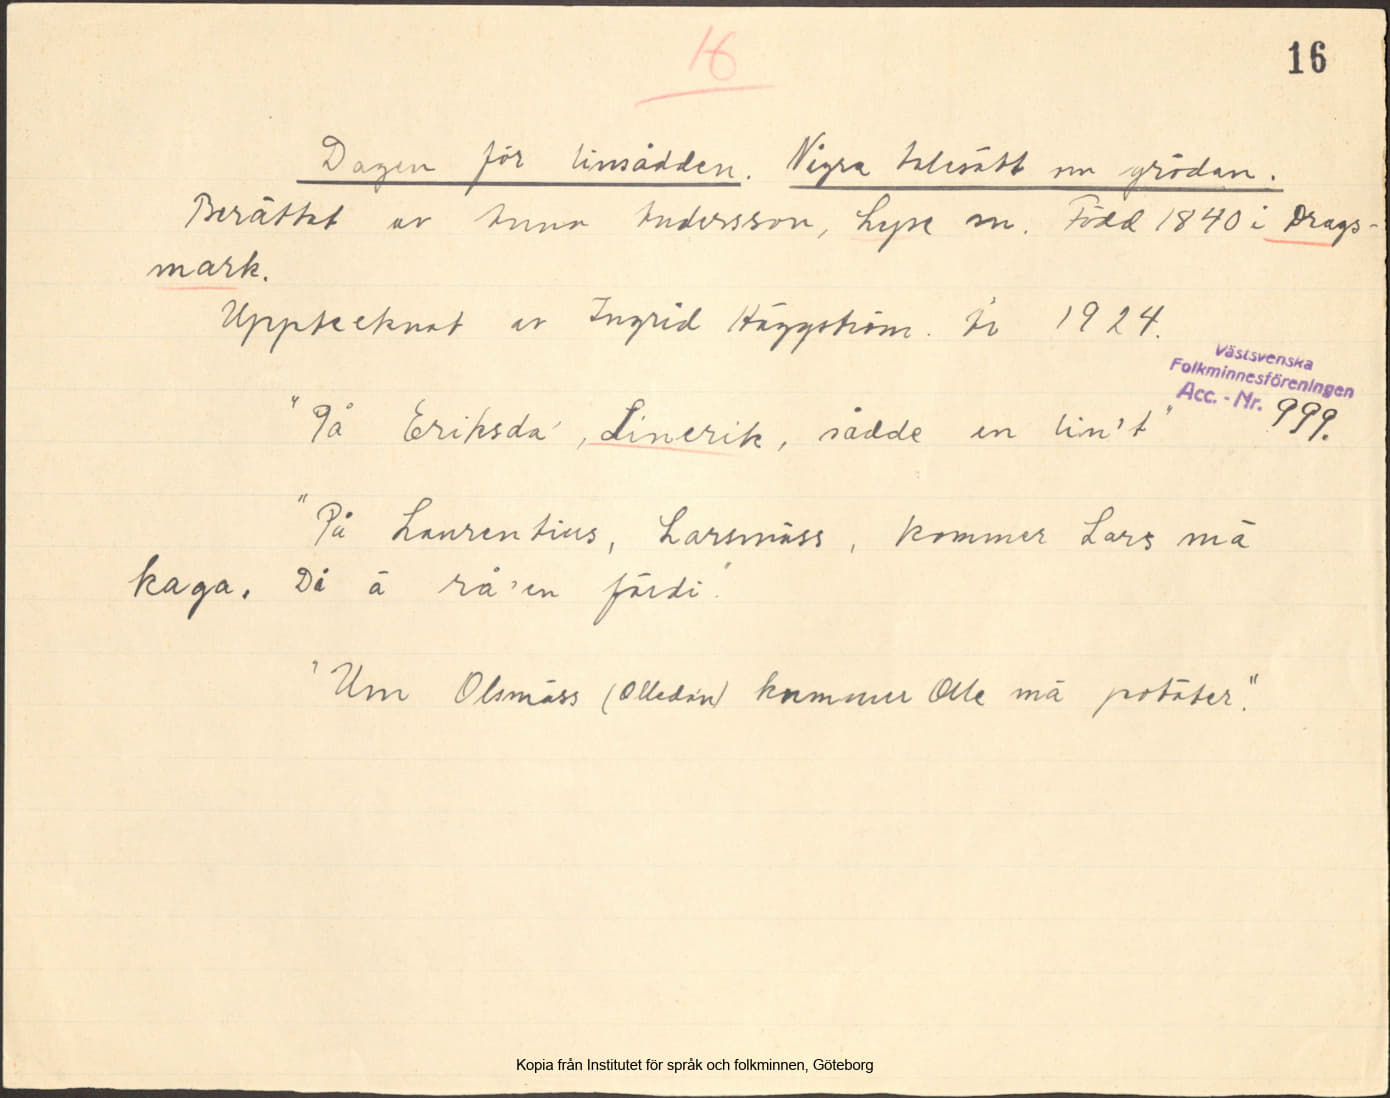 16
16
Dagen för linsådden. Några talesätt om grödan.
Berättat av Anna Andersson, Lyse sn. Född 1840 i Drags-
mark.
Upptecknat av Ingrid Häggström. År 1924.
Västsvenska
Folkminnesföreningen
Acc. - Nr. 999.
"På Eriksda', Linerik, sådde en lin't"
"På Laurentius, Larsmäss, kommer Lars mä
kaga. Då ä rå'en färdi".
"Um Olsmäss (Olledan) kummer Olle mä potäter."
Kopia från Institutet för språk och folkminnen, Göteborg